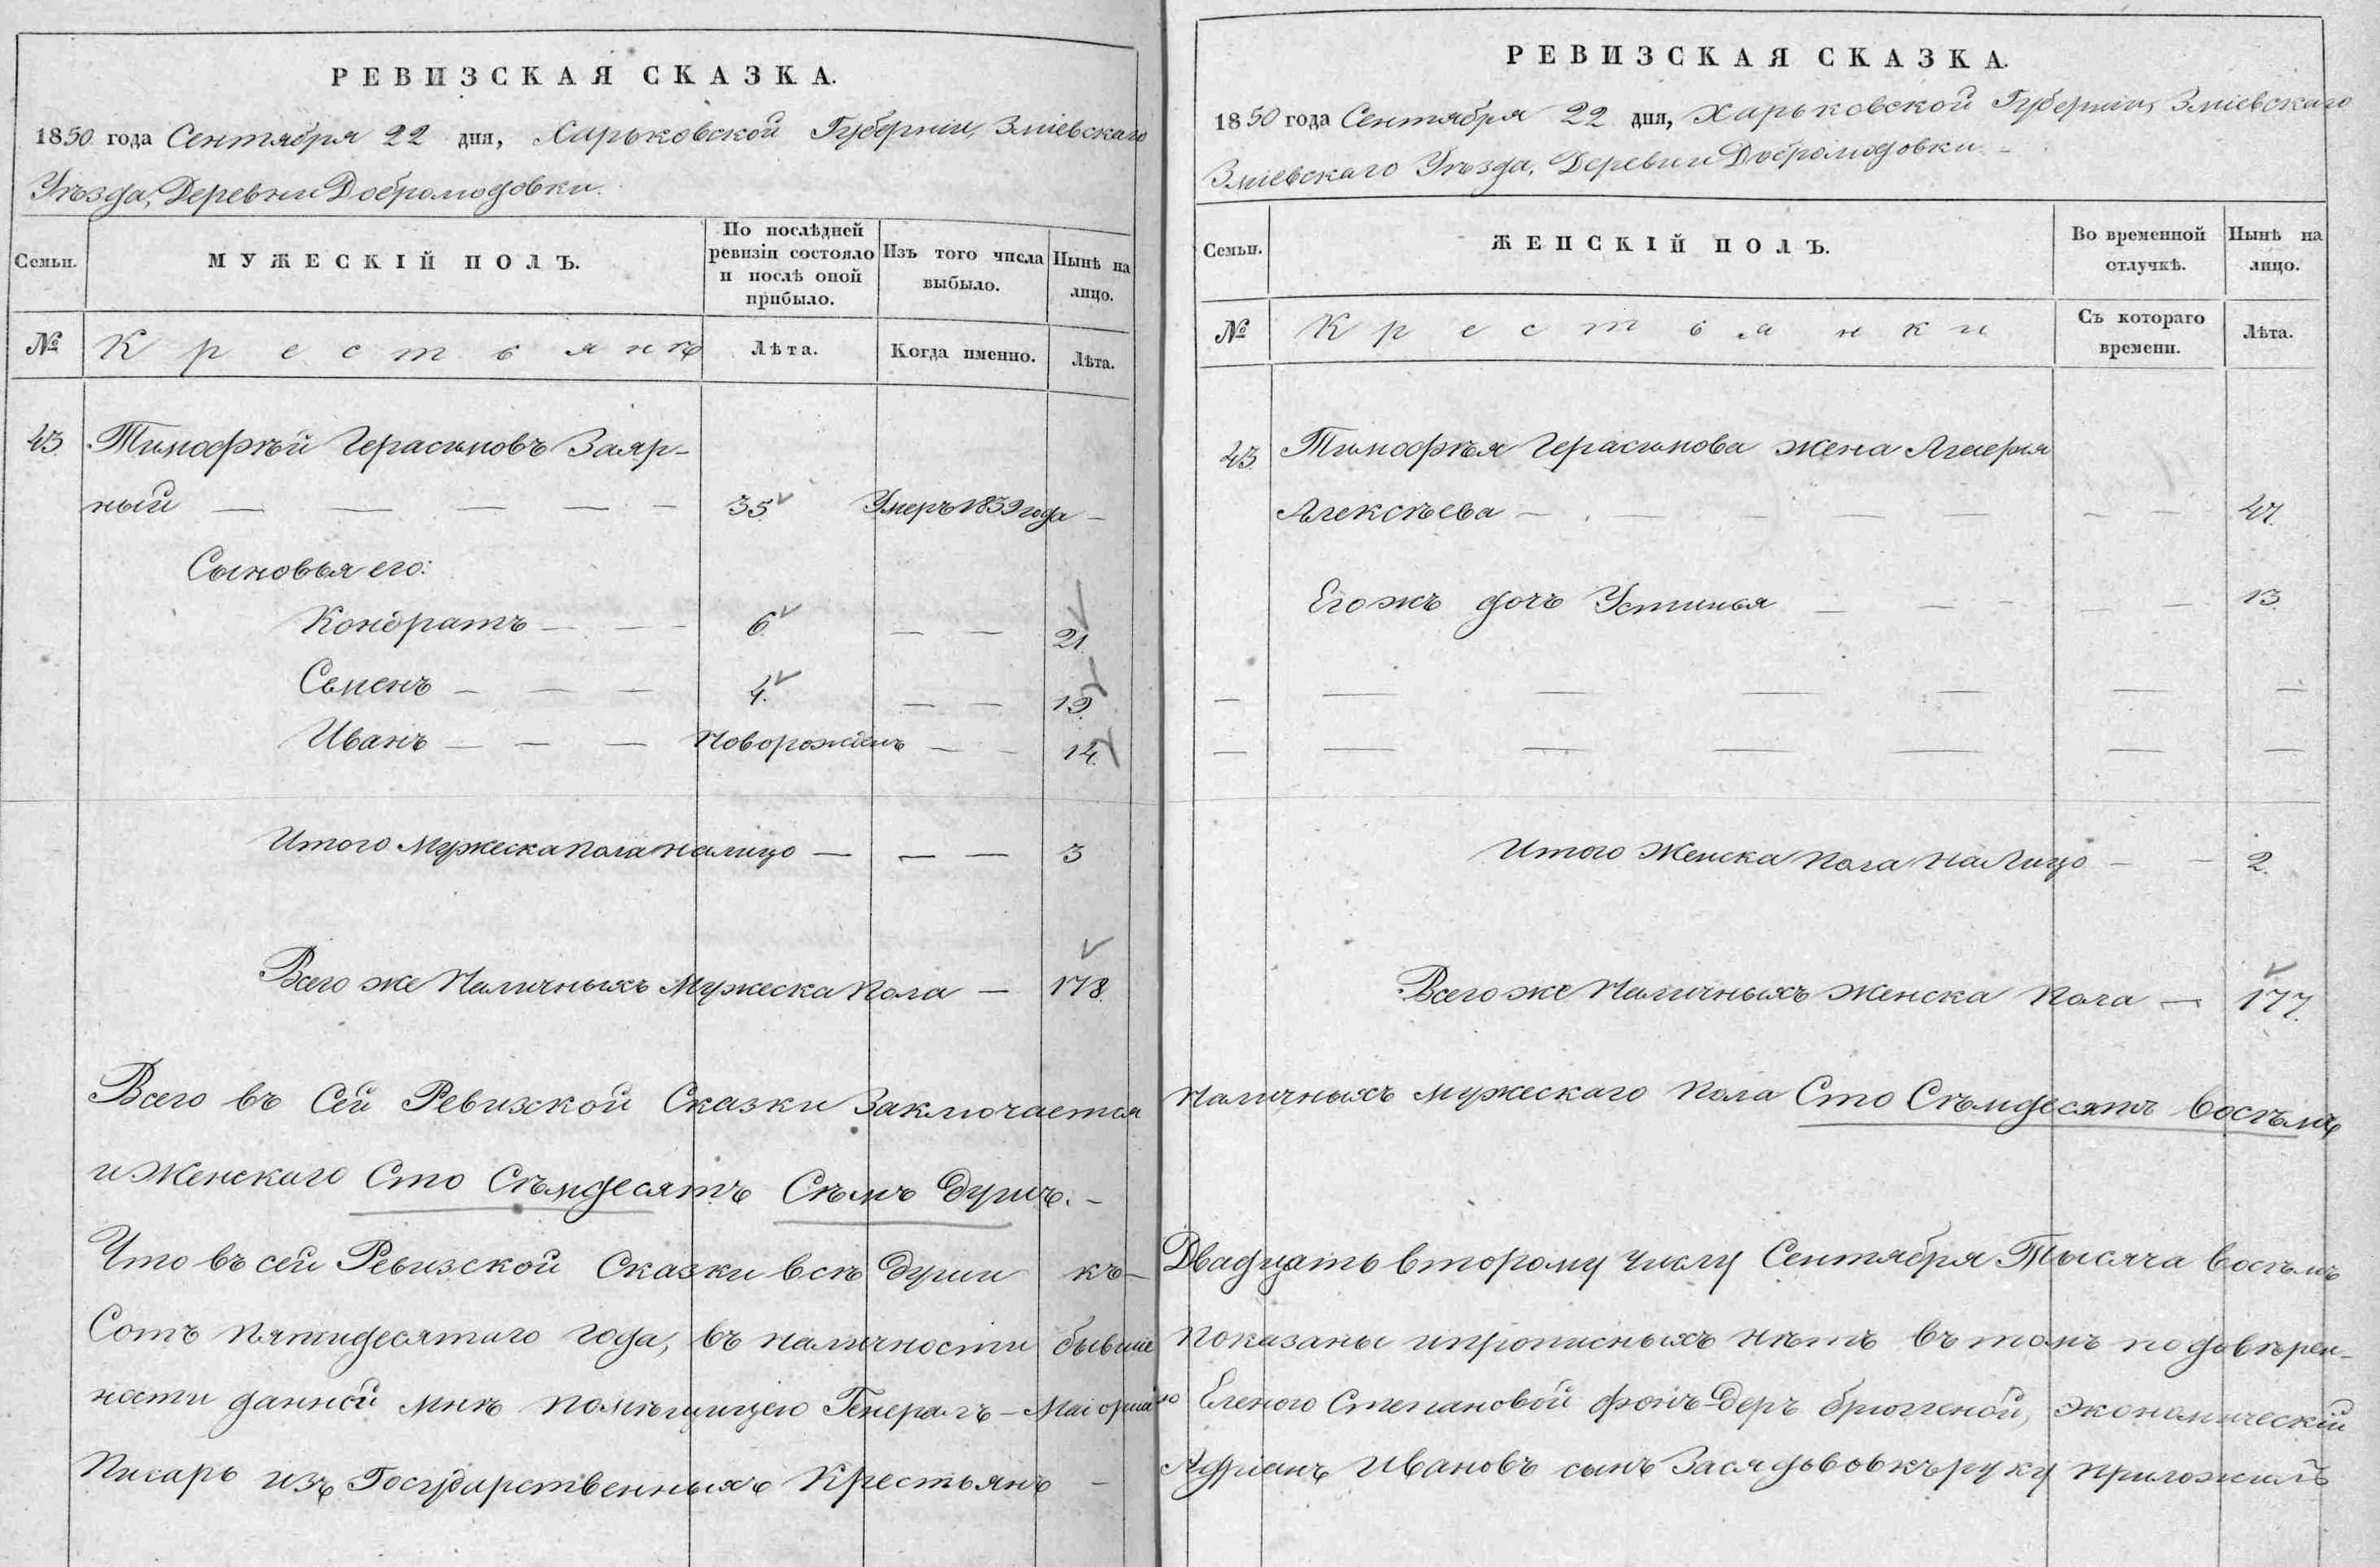 РЕВИЗСКАЯ СКАЗКА.
1850 года Сентября 22 дня, Харьковской Губерніи, Зміевскаго
Уѣзда, Деревни Добромодовки.
Семьи.
МУЖЕСКІЙ ПОЛЪ.
По послѣдней ревизіи состояло и послѣ оной прибыло.
Изъ того числа выбыло.
Нынѣ на лицо.
№
Крестьянъ
Лѣта.
Когда именно.
Лѣта.
43. Тимофѣй Герасимовъ Заяр-
ный — — — — — 35. Умеръ 1839 года —
Сыновья его:
Кондратъ — — — 6. — — 21.
Семенъ — — — 4. — — 19.
Иванъ — — — Новорожденъ — — 14.
Итого Мужеска пола налицо — — — 3
Всего же Наличныхъ Мужеска Пола — 178.
Всего въ Сей Ревизской Сказки Заключается
и Женскаго Сто Семдесятъ Семъ Душъ. —
Что въ сей Ревизской Сказки всѣ Души къ —
Сотъ Пятидесятаго года, въ наличности бывшіе
ности данной мнѣ Помѣщицею Генералъ-Маіоршею
Писарь изъ Государственныхъ Крестьянъ —
РЕВИЗСКАЯ СКАЗКА.
1850 года Сентября 22 дня, Харьковской Губерніи, Зміевскаго
Зміевскаго Уѣзда, Деревни Добромодовки —
Семьи.
ЖЕНСКІЙ ПОЛЪ.
Во временной отлучкѣ.
Нынѣ на лицо.
№
Крестьянки
Съ котораго времени.
Лѣта.
43. Тимофѣя Герасимова жена
Алексѣева — — — — — 47.
Егожъ дочь Устинья — — — — — 13.
Итого Женска Пола На Лицо — — 2.
Всего же Наличныхъ Женска Пола — 177.
Наличныхъ мужескаго Пола Сто Семдесятъ Восѣмъ
Двадцать второму числу Сентября Тысяча Восѣмъ
Показаны и прописныхъ нѣтъ въ томъ по довѣрен-
Еленою Степановой фонъ-Деръ Брюггеной, Экономическій
Адріанъ Ивановъ сынъ руку приложилъ